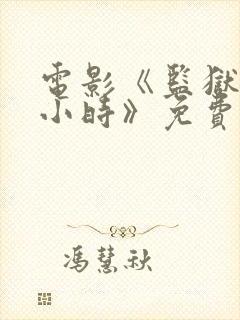 電影《監獄
小時》免費
馮慧秋